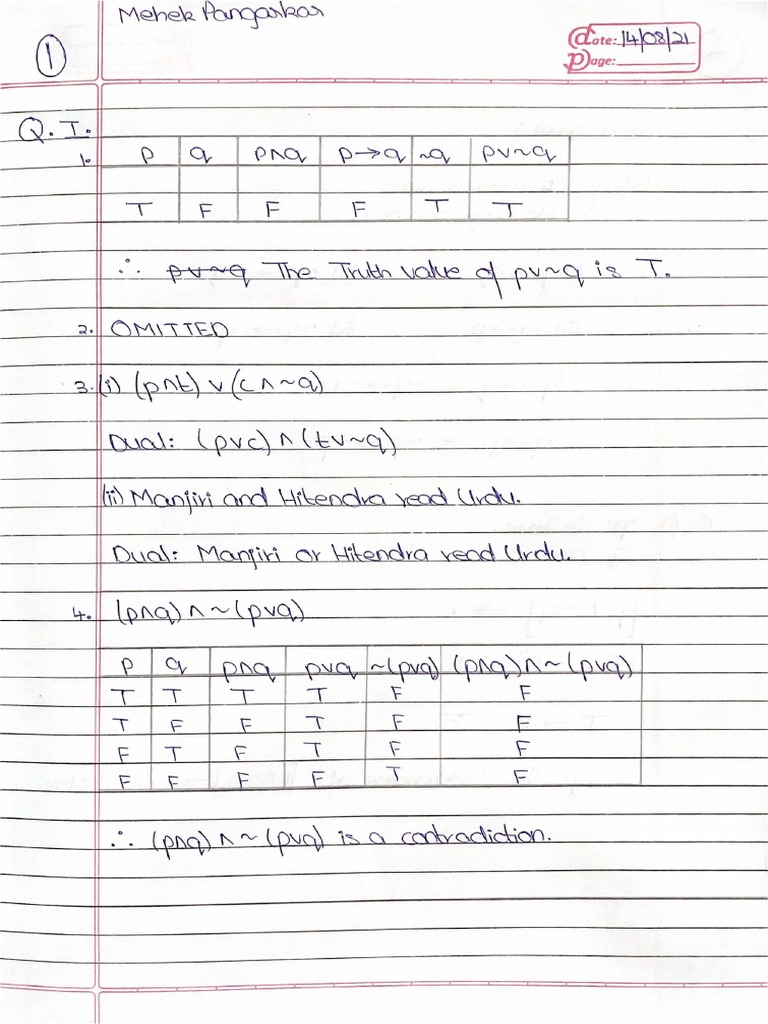 Mehek Pangarkar
1
Date: 14/08/21
Page:
Q. I.
1. p q p∧q p→q ~q p∨~q
T F F F T T
∴ p∨~q The Truth value of p∨~q is T.
2. OMITTED
3. (i) (p∧t) ∨ (c∧~q)
Dual: (p∨c) ∧ (t∨~q)
(ii) Manjiri and Hitendra read Urdu.
Dual: Manjiri or Hitendra read Urdu.
4. (p∧q) ∧ ~(p∨q)
p q p∧q p∨q ~(p∨q) (p∧q)∧~(p∨q)
T T T T F F
T F F T F F
F T F T F F
F F F F T F
∴ (p∧q) ∧ ~(p∨q) is a contradiction.